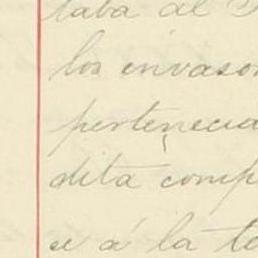 taba al
los invasor
pertenecia
dita comp
se á la te